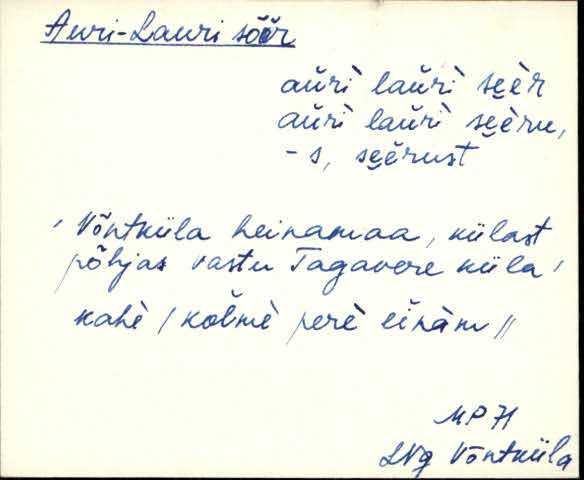 Auri-Lauri sõõr
aŭrì laŭrì se̮èr
aŭrì laŭrì se̮èru,
- s, se̮ĕrust
' Võntküla heinamaa, külast
põhjas vastu Tagavere küla '
kahè / kolmè perè eĭnàm //
MP 71
LNg Võntküla